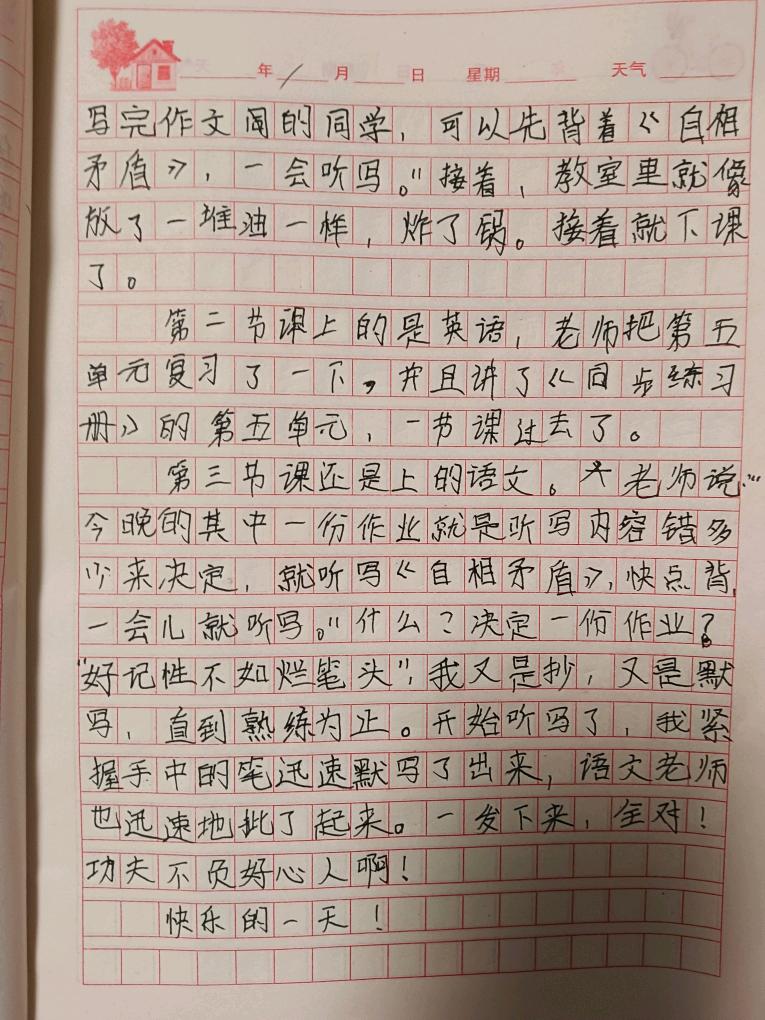 年 / 月 日 星期 天气
写完作文闻的同学，可以先背着《自相
矛盾》，一会听写。"接着，教室里就像
放了一堆油一样，炸了锅。接着就下课
了。
第二节课上的是英语，老师把第五
单元复习了一下。并且讲了《同步练习
册》的第五单元，一节课过去了。
第三节课还是上的语文。老师说："
今晚的其中一份作业就是听写内容错多
少来决定，就听写《自相矛盾》，快点背，
一会儿就听写。"什么？决定一份作业？
"好记性不如烂笔头"，我又是抄，又是默
写，直到熟练为止。开始听写了，我紧
握手中的笔迅速默写了出来，语文老师
也迅速地批了起来。一发下来，全对！
功夫不负好心人啊！
快乐的一天！